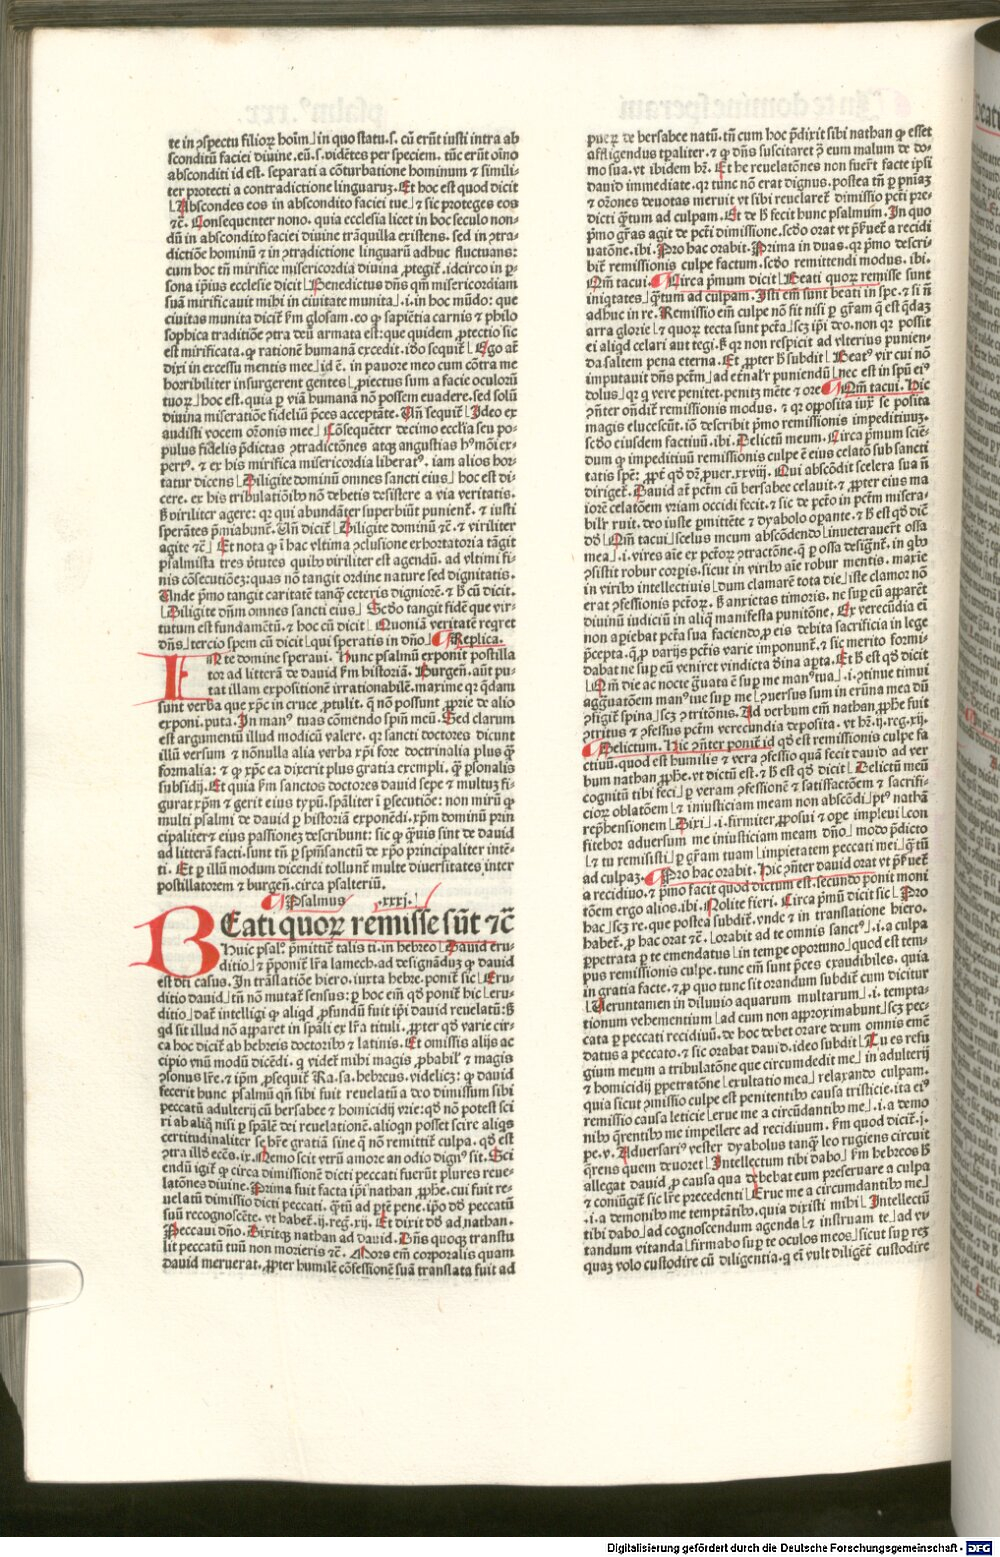 te in ꝯspectu filioꝝ hoim̄⌋ in quo statu .s. cū erūt iusti intra ab
sconditū faciei diuine .eū .s. vidētes per speciem. tūc erūt oīno
absconditi id est. separati a cōturbatione hominum ⁊ simili-
ter protecti a contradictione linguarum. Et hoc est quod dicit
⌊Abscondes eos in abscondito faciei tue⌋ ⁊ sic proteges eos
⁊c̄. Consequenter nono. quia ecclesia licet in hoc seculo non-
dū in abscondito faciei diuine trāquilla existens. sed in ꝯtra-
dictiōe hominū ⁊ in ꝯtradictione linguarū adhuc fluctuans:
cum hoc tn̄ mirifice misericordia diuina ꝓtegit᷑. idcirco in ꝑ
sona ip̄ius ecclesie dicit⌊Benedictus dn̄s qm̄ misericordiam
suā mirificauit mihi in ciuitate munita⌋ .i. in hoc mūdo: que
ciuitas munita dicit᷑ ẜm glosam. eo ꝙ sapiētia carnis ⁊ philo
sophica traditiōe ꝯtra deū armata est: que quidem ꝓtectio sic
est mirificata. ꝙ rationē humanā excedit. iō seqͥtur⌊Ego at̄
dixi in excessu mentis mee⌋ id ē. in pauore meo cum cōtra me
horribiliter insurgerent gentes⌊ꝓiectus sum a facie oculorū
tuoꝝ⌋ hoc est. quia ꝑ viā humanā nō possem euadere. sed solū
diuina miseratiōe fideliū p̄ces acceptāte. Un̄ sequit᷑⌊Ideo ex
audisti vocem orōnis mee⌋ Cōsequēter decimo ecclīa seu po-
pulus fidelis p̄dictas ꝯtradictōnes atqꝫ angustias hꝰmōi ex-
pertꝰ. ⁊ ex his mirifica misericordia liberatꝰ. iam alios hor-
tatur dicens⌊Diligite dominū omnes sancti eius⌋ hoc est di-
cere. ex his tribulatiōibꝰ nō debetis desistere a via veritatis.
ẜ viriliter agere: qꝛ qui abundāter superbiūt punient᷑. ⁊ iusti
sperātes p̄miabunt᷑. Un̄ dicit᷑⌊Diligite dominū ⁊c̄. ⁊ viriliter
agite ⁊c̄⌋ Et nota ꝙ ī hac vltima ꝯclusione exhortatoria tāgit
psalmista tres v̄tutes quibꝰ viriliter est agendū. ad vltimi fi-
nis cōsecutiōeꝫ: quas nō tangit ordine nature sed dignitatis.
Unde p̄mo tangit caritatē tanqꝫ ceteris digniorē. ⁊ ħ cū dicit.
⌊Diligite dn̄m omnes sancti eius⌋ Scd̄o tangit fidē que vir-
tutum est fundamētū. ⁊ hoc cū dicit⌊Quoniā veritatē requiret
dn̄s⌋ tercio spem cū dicit⌊qui speratis in dn̄o⌋ ¶ Replica.
IN te domine speraui. Hunc psalmū exponit postilla
tor ad litterā de dauid ẜm historiā. Burgeñ. aūt pu-
tat illam expositionē irrationabilē. maxime qꝛ q̄dam
sunt verba que xp̄c in cruce ꝓtulit. q̄ nō possunt ꝓprie de alio
exponi. puta. In manꝰ tuas cōmendo spm̄ meū. Sed clarum
est argumentū illud modicū valere. qꝛ sancti doctores dicunt
illū versum ⁊ nōnulla alia verba xp̄i fore doctrinalia plus qꝫ
formalia: ⁊ ꝙ xp̄c ea dixerit plus gratia exempli. qꝫ ꝑsonalis
subsidij. Et quia ẜm sanctos doctores dauid sepe ⁊ multuꝫ fi-
gurat xp̄m ⁊ gerit eius typū. spāliter ī ꝑsecutiōe: non mirū ꝙ
multi psalmi de dauid ꝑ historiā exponēdi. xp̄m dominū prin
cipaliter ⁊ eius passioneꝫ describunt: sic ꝙ q̄uis sint de dauid
ad litterā facti. sunt tn̄ ꝑ spm̄sanctū de xp̄o principaliter intē-
ti. Et ꝑ illū modum dicendi tollunt᷑ multe diuersitates inter
postillatorem ⁊ burgeñ. circa psalteriū.
¶ Psalmus .xxxj.
BEati quoꝝ remisse sūt ⁊c̄
Huic psal͛. p̄mittit᷑ talis ti. in hebreo⌊Dauid eru-
ditio⌋ ⁊ p̄ponit᷑ lr̄a lamech. ad designādūꝫ ꝙ dauid
est dti̅ casus. In trāslatiōe hiero. iuxta hebre. ponit᷑ sic⌊Eru-
ditio dauid⌋ tn̄ nō mutat᷑ sensus: ꝑ hoc em̄ qd̄ ponit᷑ hic⌊eru-
ditio⌋ dat᷑ intelligi ꝙ aliqd̄ ꝓfundū fuit ip̄i dauid reuelatū: ẜ
qd̄ sit illud nō apparet in spāli ex lr̄a tituli. ꝓpter qd̄ varie cir-
ca hoc dicit᷑ ab hebreis doctoribꝰ ⁊ latinis. Et omissis alijs ac
cipio vnū modū dicēdi. q̄ videt᷑ mihi magis ꝓbabil̓ ⁊ magis
ꝯsonus lr̄e. ⁊ ip̄m ꝓsequit᷑ Ra. sa. hebreus. videlicꝫ: ꝙ dauid
fecerit hunc psalmū qn̄ sibi fuit reuelatū a deo dimissum sibi
peccatū adulterij cū bersabee ⁊ homicidij vrie: qd̄ nō potest sci
ri ab aliqͦ nisi ꝑ spālē dei reuelationē. alioqn̄ posset scire aliqͥs
certitudinaliter se hr̄e gratiā sine q̄ nō remittit᷑ culpa. qd̄ est
ꝯtra illd̄ eccs̄. ix. Nemo scit vtrū amore an odio dignꝰ sit. Sci
endū igit᷑ ꝙ circa dimissionē dicti peccati fuerūt plures reue-
latōnes diuine. Prima fuit facta ip̄i nathan ꝓphe. cui fuit re-
uelatū dimissio dicti peccati. qͣtū ad ꝑtē pene. ip̄o dd̄ peccatū
suū recognoscēte. vt habet᷑ .ij. reg. xij. Et dixit dd̄ ad nathan.
Peccaui dn̄o. Dixitqꝫ nathan ad dauid. Dn̄s quoqꝫ transtu
lit peccatū tuū non morieris ⁊c̄. Mors em̄ corporalis quam
dauid meruerat. ꝓpter humilē cōfessionē suā translata fuit ad
pueꝝ de bersabee natū. tn̄ cum hoc p̄dixit sibi nathan ꝙ esset
affligendus tp̄aliter. ⁊ ꝙ dn̄s suscitaret ꝯ̄ eum malum de do-
mo sua. vt ibidem hꝫ. Et he reuelatōnes non fuer̄t facte ipsi
dauid immediate. qꝛ tunc nō erat dignus. postea tn̄ ꝑ pn̄iaꝫ
⁊ orōnes deuotas meruit vt sibi reuelaret᷑ dimissio pctī pre-
dicti qͣtum ad culpam. Et de ħ fecit hunc psalmum. In quo
p̄mo gr̄as agit de pctī dimissione. scd̄o orat vt p̄seruet᷑ a recidi
uatōne. ibi. Pro hac orabit. Prima in duas. qꝛ p̄mo descri-
bit᷑ remissionis culpe factum. scd̄o remittendi modus. ibi.
Qm̄ tacui. ¶ Circa p̄mum dicit⌊Beati quoꝝ remisse sunt
iniqͥtates⌋ qͣtum ad culpam. Isti em̄ sunt beati in spe. ⁊ si n̄
adhuc in re. Remissio em̄ culpe nō fit nisi ꝑ gr̄am q̄ est qdaꝫ
arra glorie⌊⁊ quoꝝ tecta sunt pctā⌋ scꝫ ip̄i deo. non qꝛ possit
ei aliqd̄ celari aut tegi. ẜ qꝛ non respicit ad vlterius punien-
da saltem pena eterna. Et ꝓpter ħ subdit⌊Beatꝰ vir cui nō
imputauit dn̄s pctm̄⌋ ad et̄nal̓r puniendū⌊nec est in spū eiꝰ
dolus⌋ qꝛ qͥ vere penitet. penitꝫ mēte ⁊ ore ¶ Qm̄ tacui. Hic
ꝯn̄ter ondit᷑ remissionis modus. ⁊ qꝛ opposita iuxͣ se posita
magis elucescūt. iō describit᷑ p̄mo remissionis impeditiuuꝫ.
scd̄o eiusdem factiuū. ibi. Delictū meum. Circa p̄mum sciē-
dum ꝙ impeditiuū remissionis culpe ē eius celatō sub sancti
tatis spē: ꝓpt̄ qd̄ dꝛ. ꝓuer. xxviij. Qui abscōdit scelera sua n̄
diriget᷑. Dauid at̄ pctm̄ cū bersabee celauit. ⁊ ꝓpter eius ma
iorē celatōem vriam occidi fecit. ⁊ sic de pctō in pctm̄ misera-
bilr̄ ruit. deo iuste ꝑmittēte ⁊ dyabolo oꝑante. ⁊ ħ est qd̄ dic̄
dd̄⌊Qm̄ tacui⌋ scelus meum abscōdendo⌊inueterauer̄t ossa
mea⌋ .i. vires aīe ex pctōꝝ ꝯtractōne. q̄ ꝑ ossa designt᷑. in qͥbꝰ
ꝯsistit robur corꝑis. sicut in viribꝰ aīe robur mentis. maxīe
in viribꝰ intellectiuis⌊dum clamarē tota die⌋ iste clamor nō
erat ꝯfessionis pctōꝝ. ẜ anxietas timoris. ne suꝑ eū apparēt
diuinū iudiciū in aliqͣ manifesta punitōne. Ex verecūdia ei
non apiebat pctā sua faciendo ꝓ eis debita sacrificia in lege
p̄cepta. q̄ ꝓ varijs pctīs varie imponunt᷑. ⁊ sic merito formi-
dabat ne suꝑ eū veniret vindicta dīna apta. Et ħ est qd̄ dicit
⌊Qm̄ die ac nocte gͣuata ē suꝑ me manꝰ tua⌋ .i. ꝯtinue timui
aggͣuatōem manꝰ tue suꝑ me⌊ꝯuersus sum in erūna mea dū
ꝯfigit᷑ spina⌋ scꝫ ꝯtritōnis. Ad verbum em̄ nathan ꝓphe fuit
ꝯtritus ⁊ ꝯfessus pctm̄ verecundia deposita. vt hꝫ .ij. reg. xij.
¶ Delictum. Hic ꝯn̄ter ponit᷑ id qd̄ est remissionis culpe fa
ctiuū. quod est humilis ⁊ vera ꝯfessio quā fecit dauid ad ver
bum nathan ꝓphe. vt dictū est. ⁊ ħ est qd̄ dicit⌊Delictū meū
cognitū tibi feci⌋ ꝑ veram ꝯfessionē ⁊ satisfactōem ⁊ sacrifi-
cioꝝ oblatōem⌊⁊ iniusticiam meam non abscōdi⌋ ptꝰ nathā
rep̄hensionem⌊Dixi⌋ .i. firmiter ꝓposui ⁊ oꝑe impleui⌊con
fitebor aduersum me iniusticiam meam dn̄o⌋ modo p̄dicto
⌊⁊ tu remisisti⌋ ꝑ gr̄am tuam⌊impietatem peccati mei⌋ qͣtū
ad culpaꝫ. ¶ Pro hac orabit. Hic ꝯn̄ter dauid orat vt p̄seruet᷑
a recidiuo. ⁊ p̄mo facit quod dictum est. secundo ponit moni
tōem ergo alios. ibi. Nolite fieri. Circa p̄mū dicit sic⌊Pro
hac⌋ scꝫ re. que postea subdit᷑. vnde ⁊ in translatione hiero.
habet᷑. ꝓ hac orat ⁊c̄. ⌊orabit ad te omnis sanctꝰ⌋ .i. a culpa
ꝑpetrata ꝑ te emendatus⌊in tempe oportuno⌋ quod est tem-
pus remissionis culpe. tunc em̄ sunt p̄ces exaudibiles. quia
in gratia facte. ⁊ ꝓ quo tunc sit orandum subdit᷑ cum dicitur
⌊Ueruntamen in diluuio aquarum multarum⌋ .i. tempta-
tionum vehementium⌊ad eum non approximabunt⌋ scꝫ pec-
cata ꝑ peccati recidiuū. de hoc debet orare deum omnis emē
datus a peccato. ⁊ sic orabat dauid. ideo subdit⌊Tu es refu
gium meum a tribulatōne que circumdedit me⌋ in adulterij
⁊ homicidij ꝑpetratōne⌊exultatio mea⌋ relaxando culpam.
quia sicut ꝯmissio culpe est penitentibꝰ causa tristicie. ita eiꝰ
remissio causa leticie⌊erue me a circūdantibꝰ me⌋ .i. a demo
nibꝰ q̄rentibꝰ me impellere ad recidiuum. ẜm quod dicit᷑ .j.
pe. v. Aduersariꝰ vester dyabolus tanqꝫ leo rugiens circuit
q̄rens quem deuoret⌊Intellectum tibi dabo⌋ ẜm hebreos ħ
allegat dauid ꝓ causa qua debebat eum preseruare a culpa
⁊ coniūgit᷑ sic lr̄e precedenti⌊Erue me a circumdantibꝰ me⌋
.i. a demonibꝰ me temptātibꝰ. quia dixisti mihi⌊Intellectū
tibi dabo⌋ ad cognoscendum agenda⌊⁊ instruam te⌋ ad vi-
tandum vitanda⌊firmabo suꝑ te oculos meos⌋ sicut suꝑ reꝫ
quaꝫ volo custodire cū diligentia. q̄ ei vult diligēt᷑ custodire
Digitalisierung gefördert durch die Deutsche Forschungsgemeinschaft - DFG